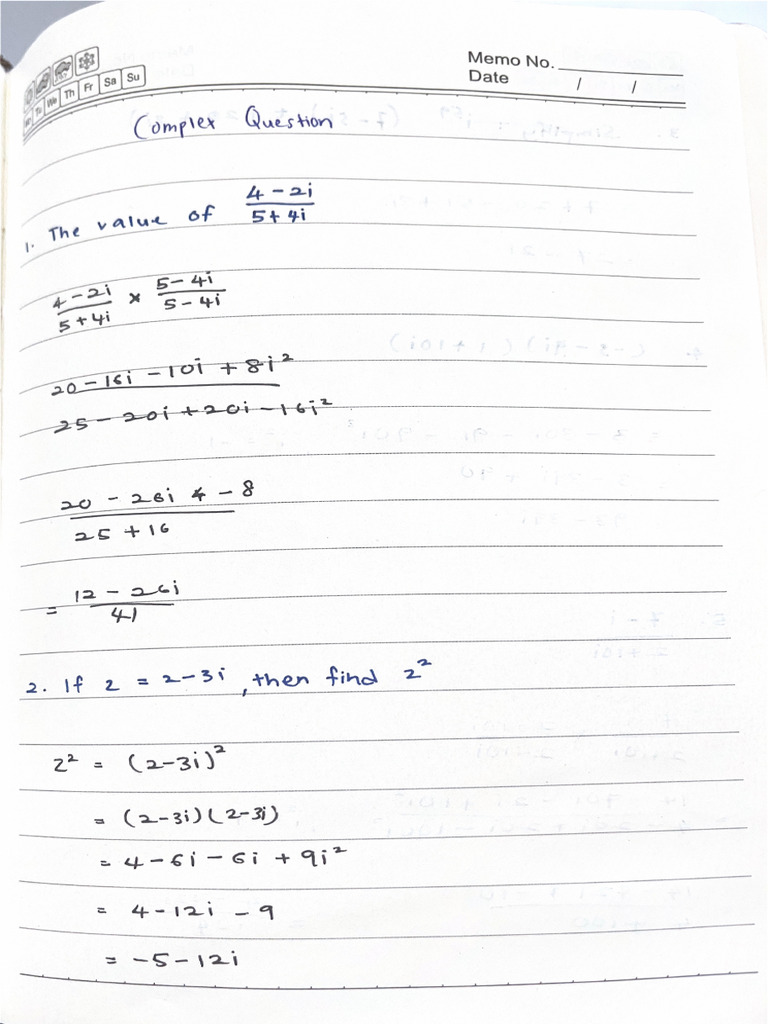 Memo No.
Date / /
Tu We Th Fr Sa Su
Complex Question
1. The value of (4 - 2i)/(5 + 4i)
(4 - 2i)/(5 + 4i) × (5 - 4i)/(5 - 4i)
20 - 16i - 10i + 8i²
25 - 20i + 20i - 16i²
20 - 26i - 8
25 + 16
= (12 - 26i)/41
2. If z = 2 - 3i, then find z²
z² = (2 - 3i)²
= (2 - 3i)(2 - 3i)
= 4 - 6i - 6i + 9i²
= 4 - 12i - 9
= -5 - 12i